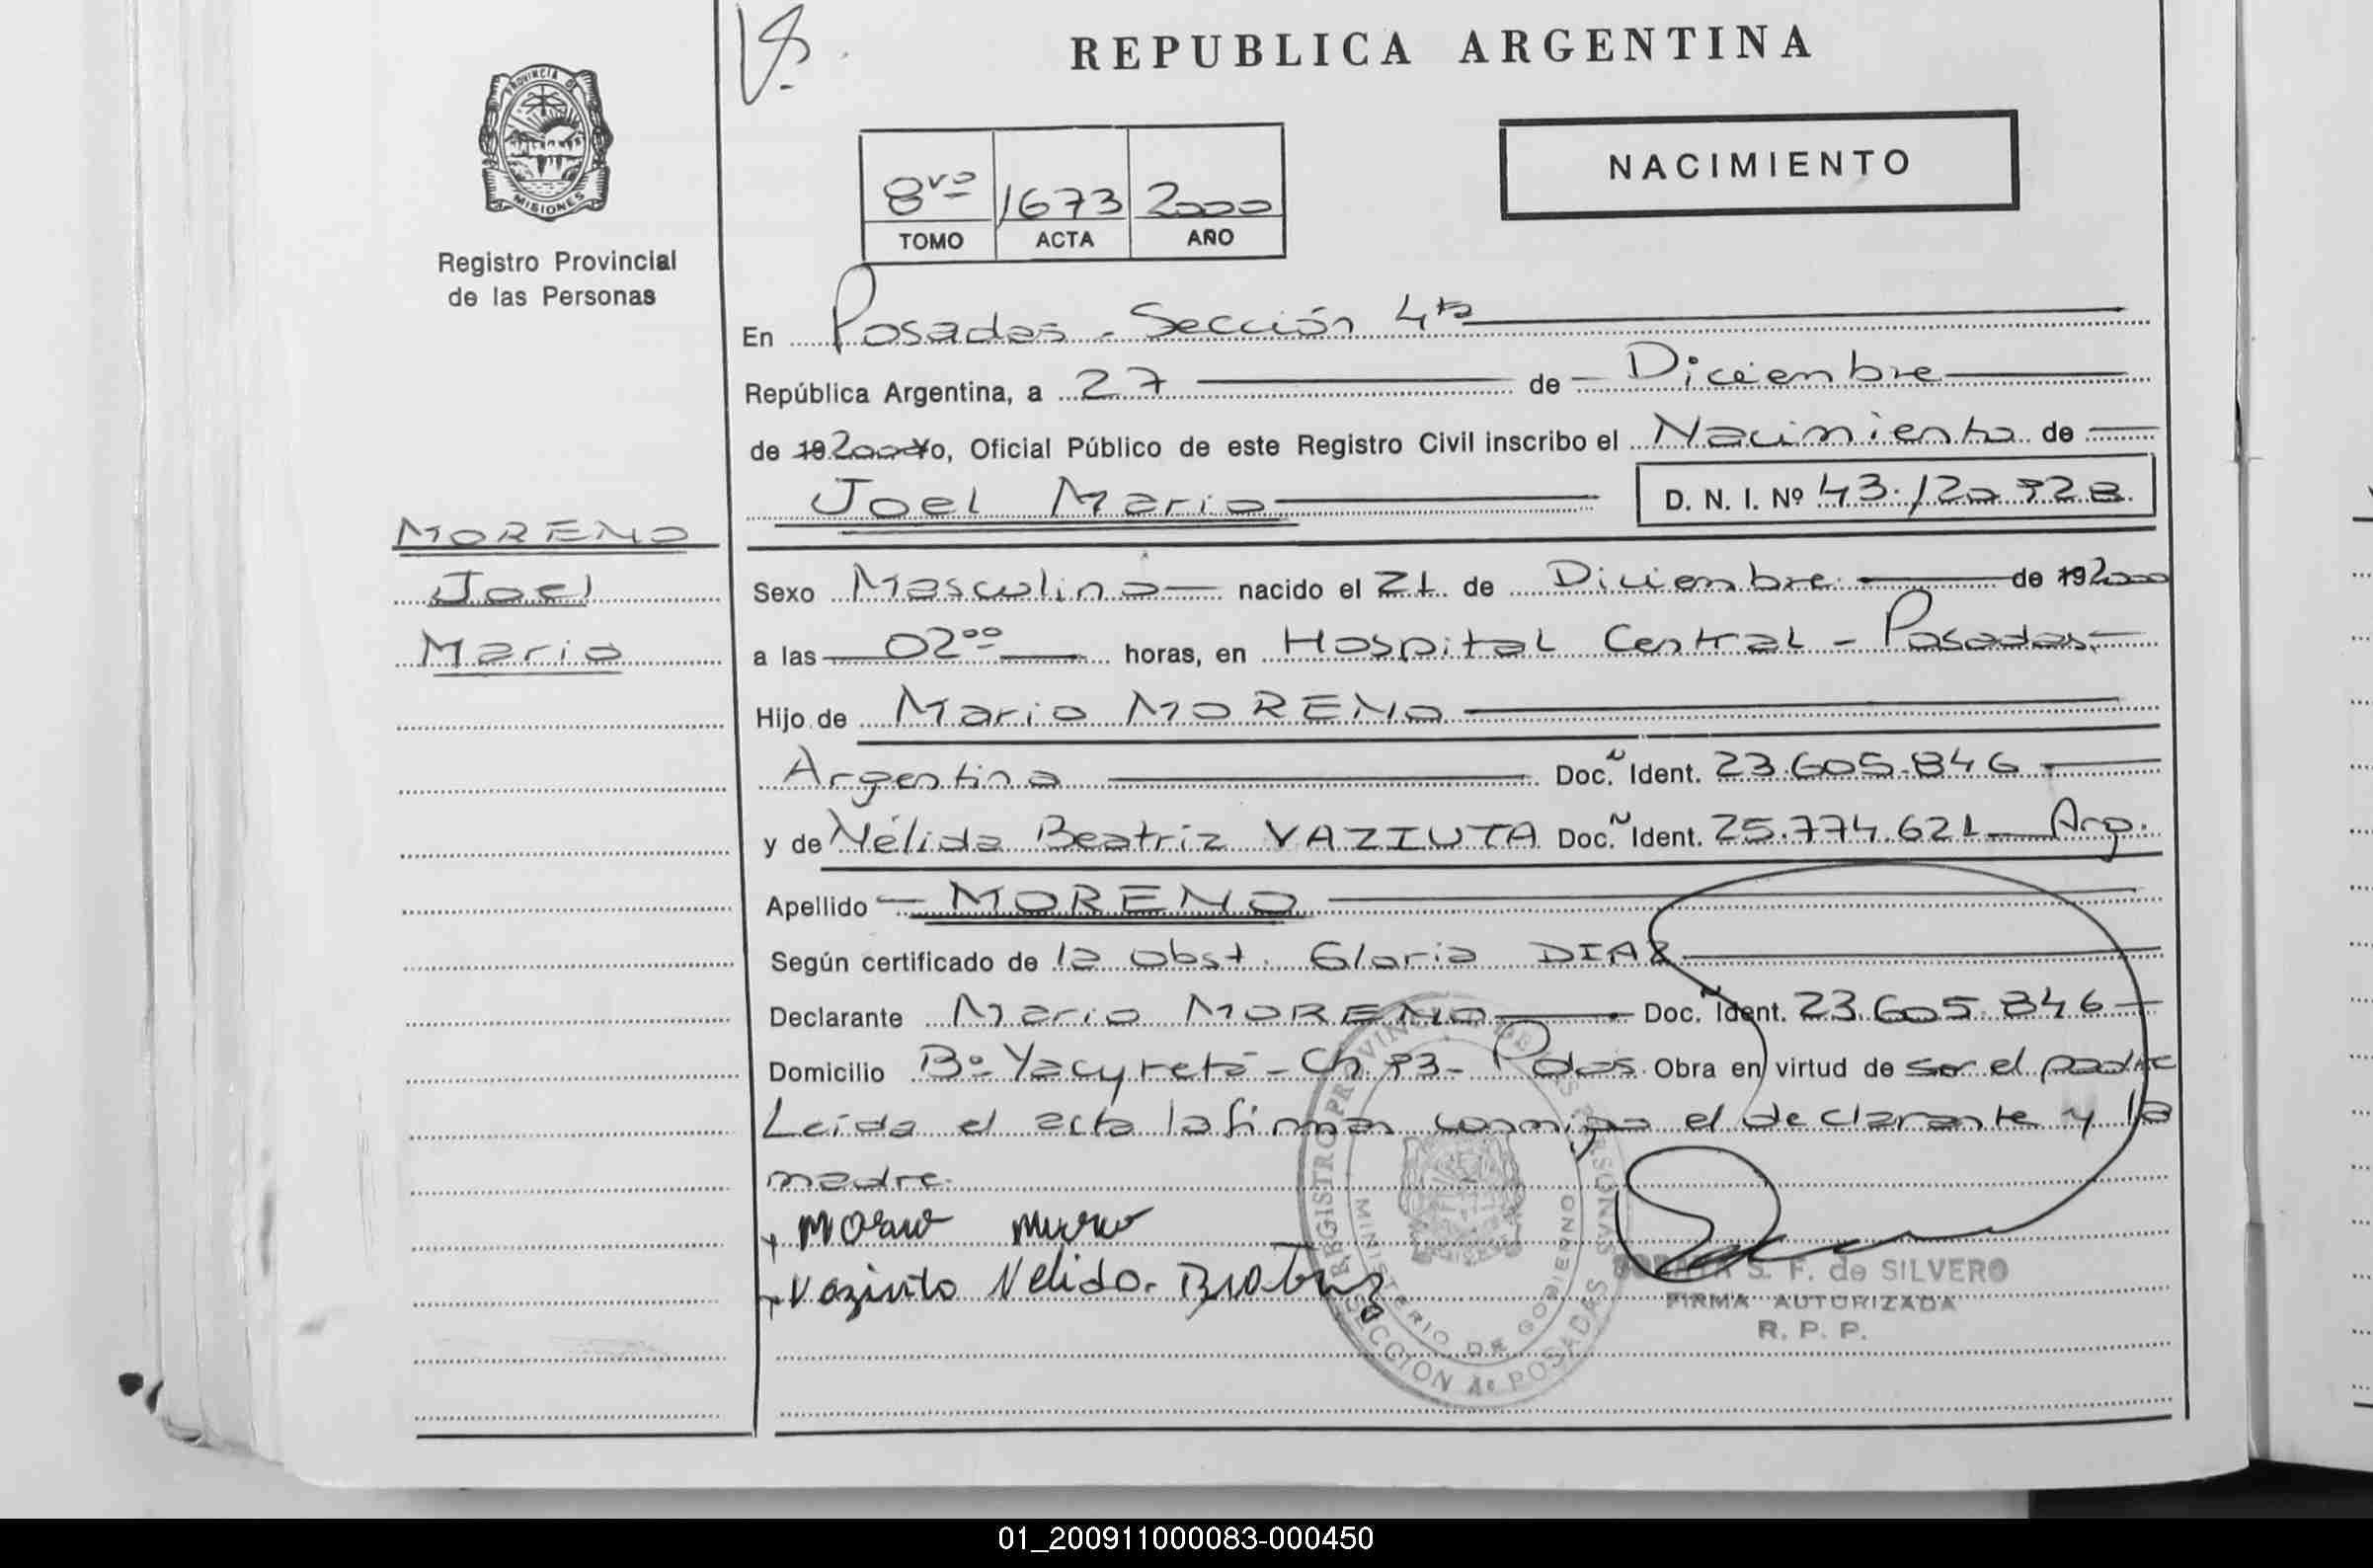 REPUBLICA ARGENTINA
PROVINCIA DE
MISIONES
Registro Provincial
de las Personas
8vo 1673 2000
TOMO ACTA AÑO
NACIMIENTO
En Posadas - Sección 4ta
República Argentina, a 27 de Diciembre
de 19 2000 Yo, Oficial Público de este Registro Civil inscribo el Nacimiento de
Joel Mario D. N. I. Nº 43.120.928
MORENO
Joel
Mario
Sexo Masculino nacido el 21 de Diciembre de 19 2000
a las 02 00 horas, en Hospital Central - Posadas
Hijo de Mario MORENO
Argentina Doc. Ident. 23.605.846
y de Nélida Beatriz VAZIUTA Doc. Ident. 25.774.621 - Arg.
Apellido MORENO
Según certificado de la obst. Gloria DIAZ
Declarante Mario MORENO Doc. Ident. 23.605.846
Domicilio Bº Yacyretá - Ch 93 - Pdas Obra en virtud de ser el padre
Leída el acta la firman conmigo el declarante y la
madre.
Vaziuto Nelida Beatriz
REGISTRO PROVINCIAL DE LAS PERSONAS
MINISTERIO DE GOBIERNO
SECCION 4ª POSADAS
S. F. de SILVERO
FIRMA AUTORIZADA
R. P. P.
01_200911000083-000450